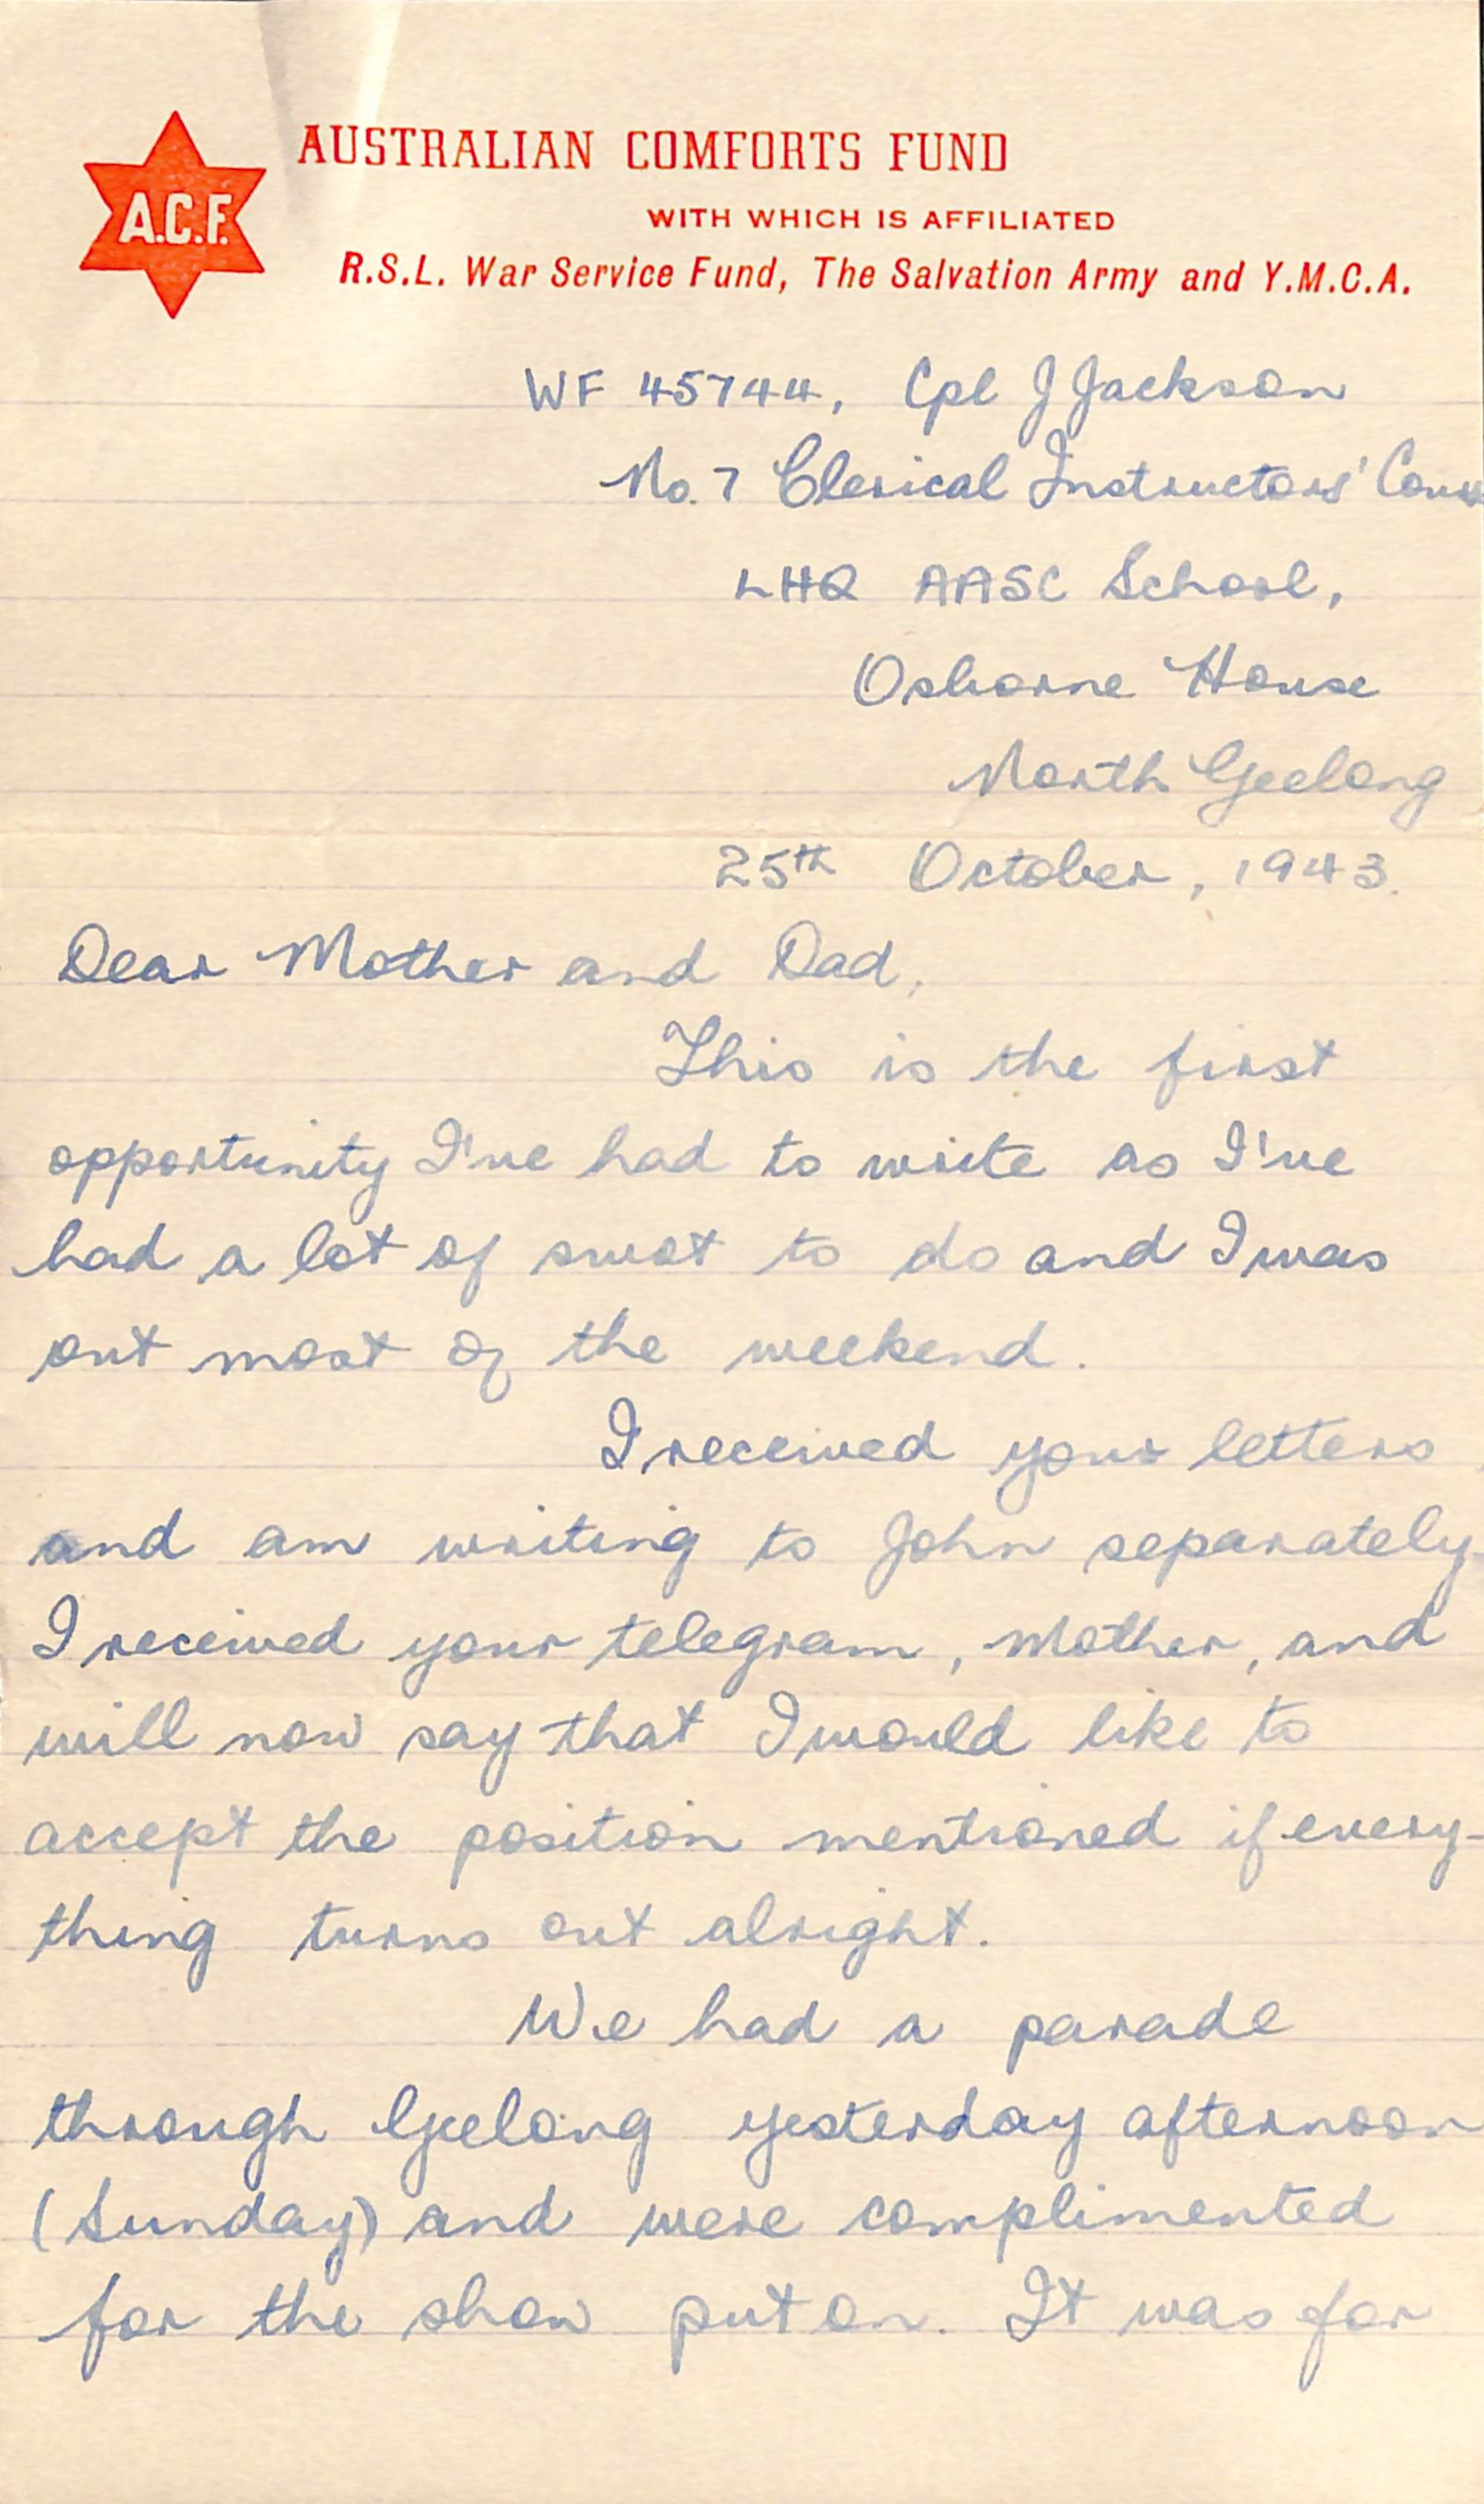 AUSTRALIAN COMFORTS FUND
A.C.F.
WITH WHICH IS AFFILIATED
R.S.L. War Service Fund, The Salvation Army and Y.M.C.A.
WF 45744, Cpl J Jackson
No. 7 Clerical Instructors' Cours
LHQ AASC School,
Osborne House
North Geelong
25th October, 1943.
Dear Mother and Dad,
This is the first
opportunity I've had to write as I've
had a lot of swot to do and I was
out most of the weekend.
I received your letters
and am writing to John separately.
I received your telegram, Mother, and
will now say that I would like to
accept the position mentioned if every-
thing turns out alright.
We had a parade
through Geelong yesterday afternoon
(Sunday) and were complimented
for the show put on. It was for